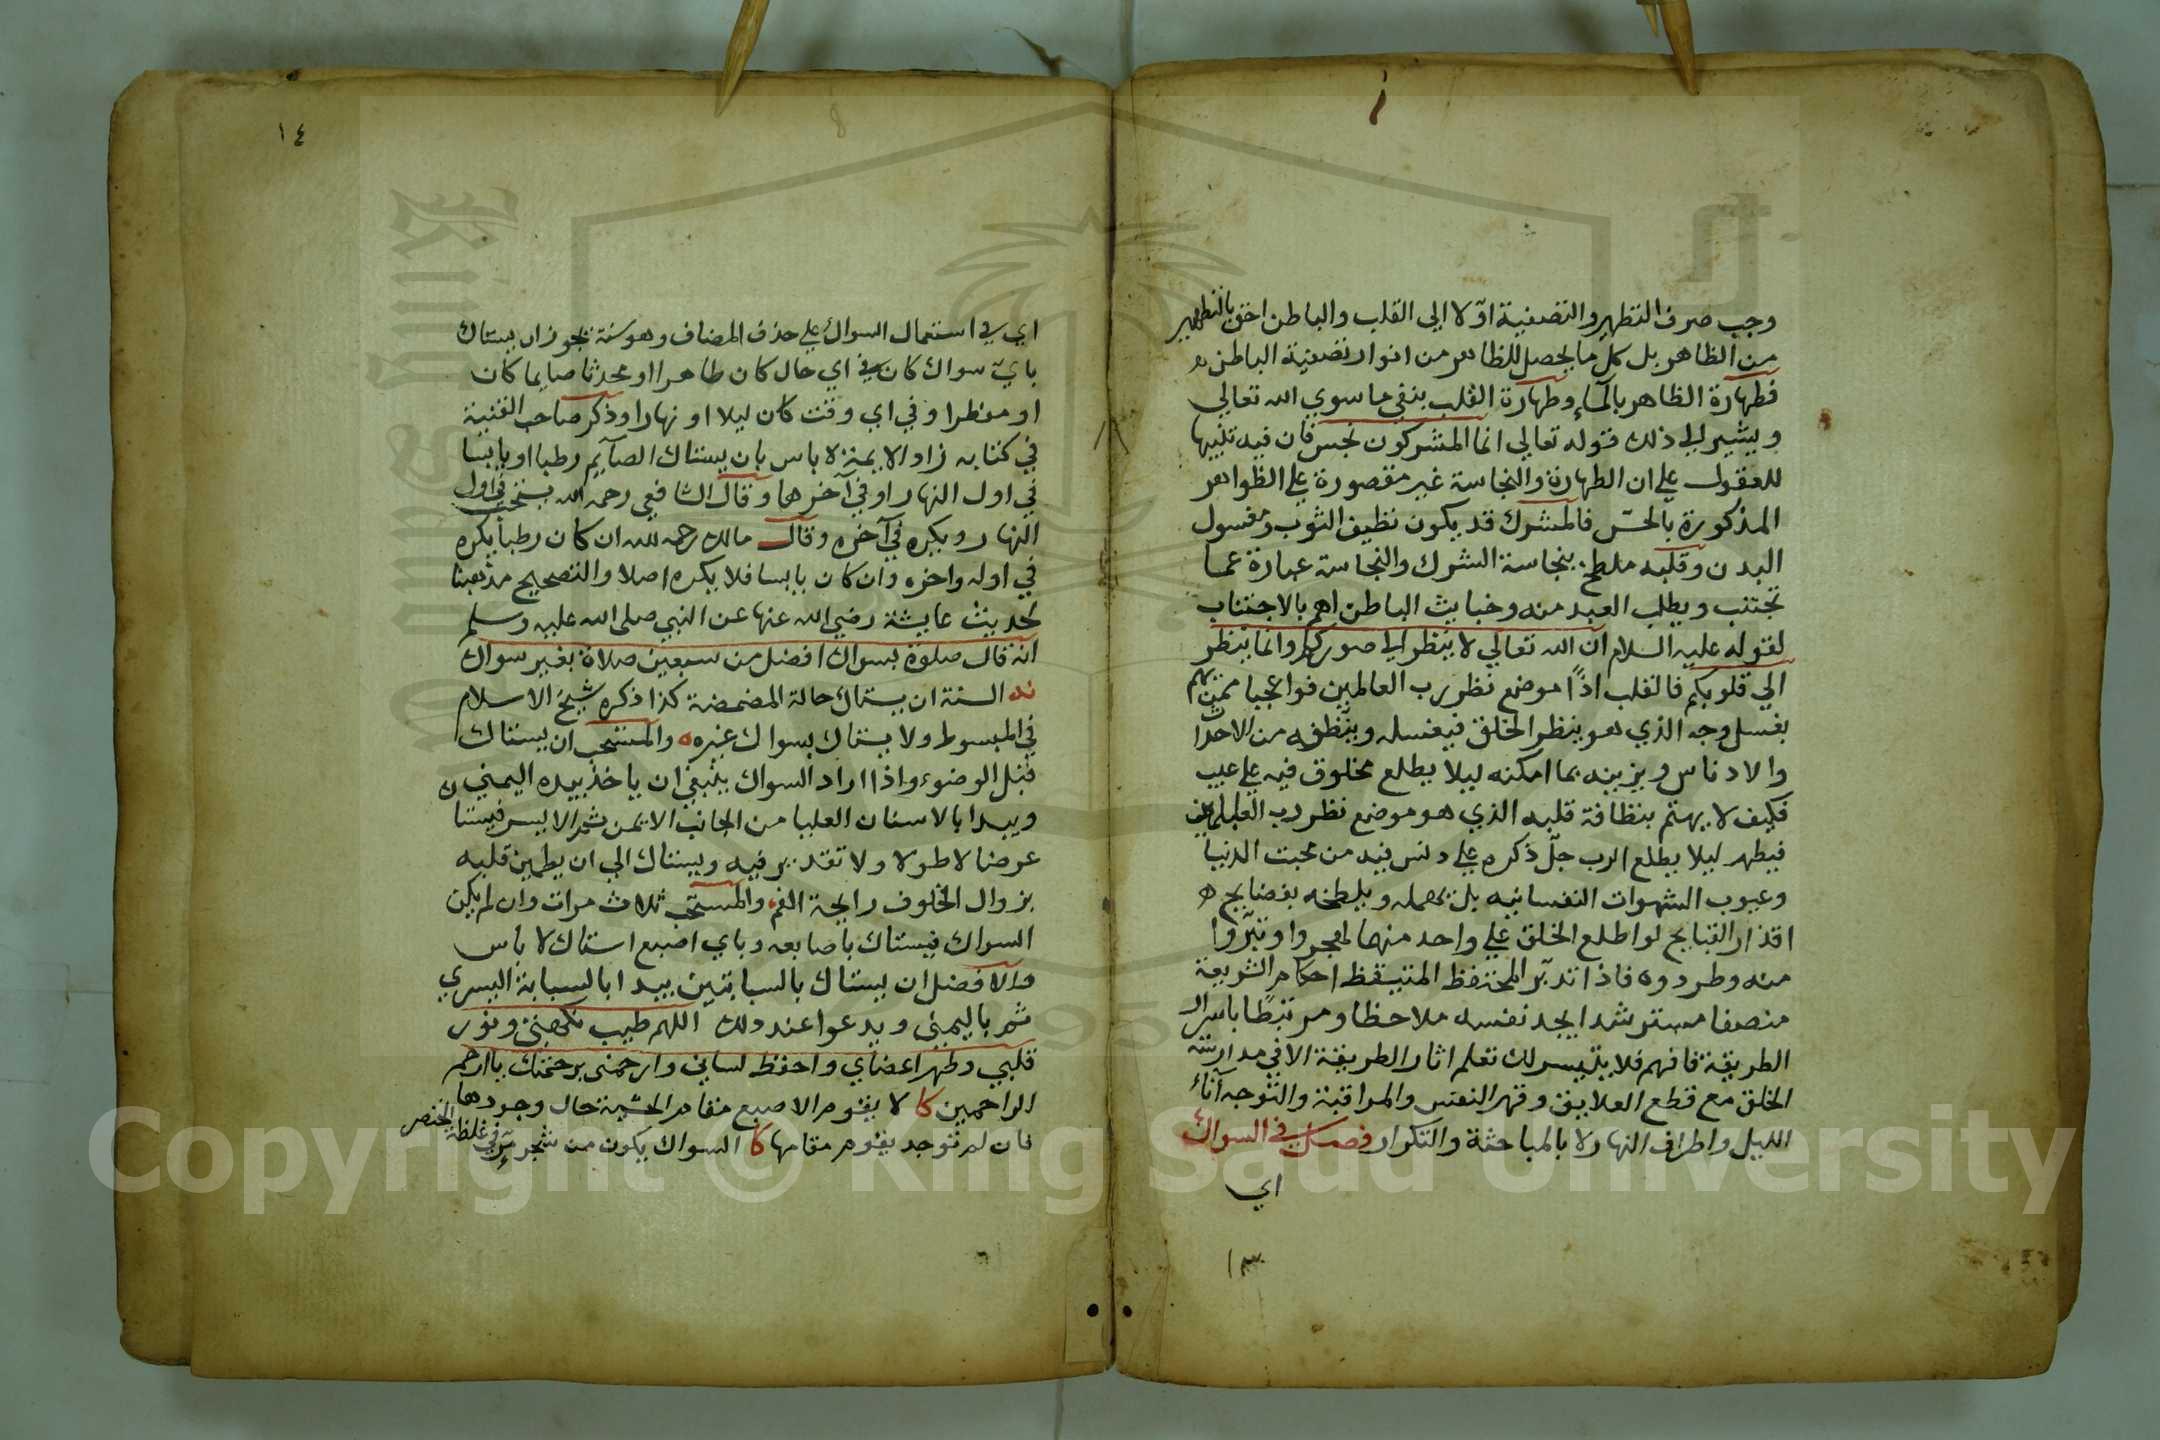 وجب صرف التطهير والتصفية اوّلا الى القلب والباطن احق بالتطهير
من الظاهر بل كل ما يحصل للظاهر من انوار تصفية الباطن
فطهارة الظاهر بالمآء وطهارة القلب بنفي ما سوي الله تعالي
ويشير الي ذلك قوله تعالي انما المشركون نجس فان فيه تنبيها
للعقول علي ان الطهارة والنجاسة غير مقصورة علي الظواهر
المذكورة بالحسّ فالمشرك قد يكون نظيف الثوب ومغسول
البدن وقلبه ملطخ بنجاسة الشرك والنجاسة عبارة عما
تجتنب ويطلب العبد منه وخبايث الباطن اهم بالاجتناب
لقوله عليه السلام ان الله تعالي لا ينظر الي صوركم وانما ينظر
الي قلوبكم فالقلب اذًا موضع نظر رب العالمين فواعجبا ممن يهتم
بغسل وجه الذي هو ينظر الخلق فيغسله وينظفه من الاحداث
والادناس ويزينه بما امكنه ليلا يطلع مخلوق فيه علي عيب
فكيف لا يهتم بنظافة قلبه الذي هو موضع نظر رب العالمين
فيطهر ليلا يطلع الرب جلّ ذكره علي دنس فيه من محبت الدنيا
وعيوب الشهوات النفسانيه بل يهمله ويلطخه بفضايح
اقذار القبايح لو اطلع الخلق علي واحد منها لهجروا وتبرّوا
منه وطردوه فاذا تدبّر المحتفظ المتيقظ احكام الشريعة
منصفا مسترشدا يجد نفسه ملاحظا ومرتبطًا باسرار
الطريقة فافهم فلا يتيسر لك تعلم اثار الطريقة الا في مدارسة
الخلق مع قطع العلايق وقهر النفس والمراقبة والتوجه آناء
الليل واطراف النهار لا بالمباحثة والتكرار فصل في السواك
اي
١٣
١٤
اي في استعمال السواك علي حذف المضاف وهو سنة يجوز ان يستاك
بايّ سواك كان في اي حال كان طاهرا او محدثا صايما كان
او مفطرا وفي اي وقت كان ليلا او نهارا وذكر صاحب القنية
في كتابه زاد الايمة لا باس بان يستاك الصآيم رطبا او يابسا
في اول النهار او في آخرها وقال الشافعي رحمه الله يستحب في اول
النهار ويكره في آخره وقال مالك رحمه الله ان كان رطبا يكره
في اوله واخره وان كان يابسا فلا يكره اصلا والتصحيح مذهبنا
لحديث عايشة رضي الله عنها عن النبي صلى الله عليه وسلم
انه قال صلوة بسواك افضل من سبعين صلاة بغير سواك
السنة ان يستاك حالة المضمضة كذا ذكره شيخ الاسلام
في المبسوط ولا يستاك بسواك غيره والمستحب ان يستاك
قبل الوضوء واذا اراد السواك ينبغي ان ياخذ بيده اليمني
ويبدا بالاسنان العليا من الجانب الايمن ثم الايسر فيستا
عرضا لا طولا ولا تقدير فيه ويستاك الي ان يطمين قلبه
بزوال الخلوف رايحة الفم والمستحب ثلاث مرات وان لم يكن
السواك فيستاك باصابعه وباي اصبع استاك لا باس
والافضل ان يستاك بالسبابتين يبدا بالسبابة اليسري
ثم باليمني ويدعوا عند ذلك اللهم طيب نكهتي ونور
قلبي وطهر اعضاي واحفظ لساني وارحمني برحمتك يا ارحم
الراحمين كا لا يقوم الاصبع مقام الخشبة حال وجودها
فان لم توجد يقوم مقامها كا السواك يكون من شجر مرّ في غلظة الخنصر